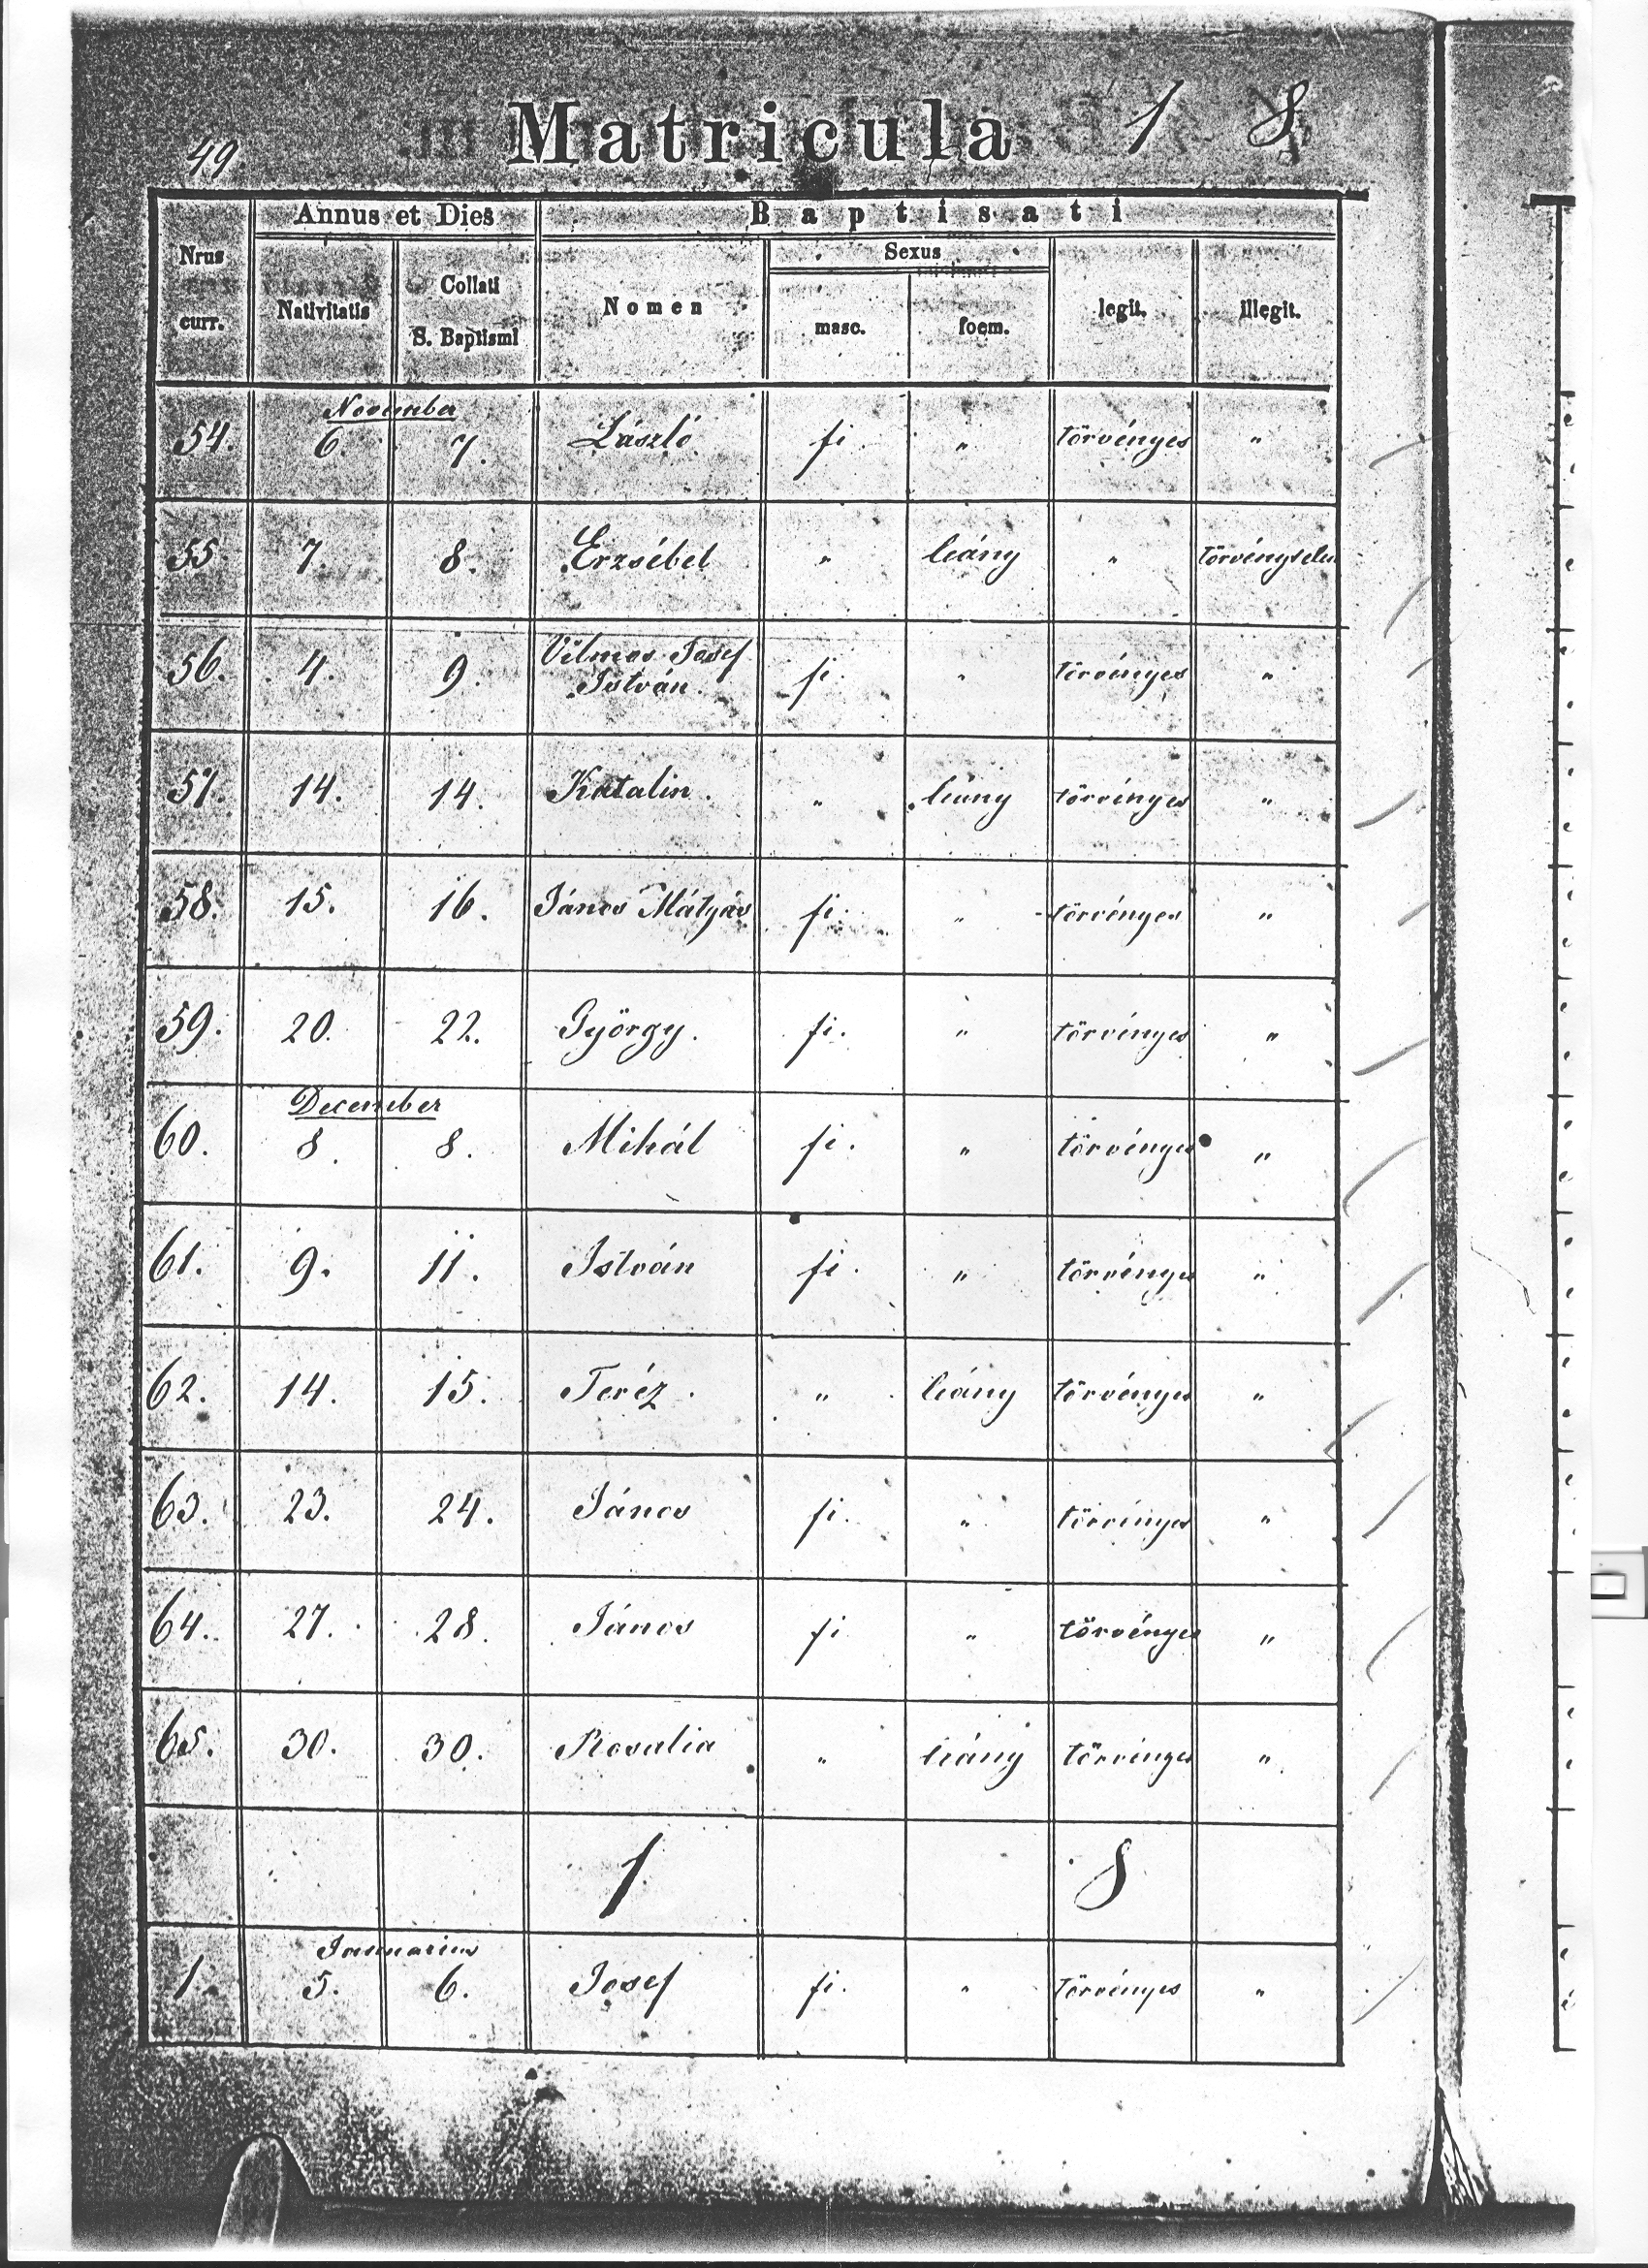 49.
Matricula 1 8
Annus et Dies Baptisati
Nrus curr. Nativitatis Collati S. Baptismi Nomen Sexus legit. illegit.
masc. foem.
November
54. 6. 7. László fi. " törvényes "
55 7. 8. Erzsébet " leány " törvénytelen
56. 4. 9. Vilmos Josef
István fi. " törvényes "
57. 14. 14. Katalin. " leány törvényes "
58. 15. 16. János Mátyás fi. " törvényes "
59. 20. 22. György. fi. " törvényes "
December
60. 8. 8. Mihál fi. " törvényes "
61. 9. 11. István fi. " törvényes "
62. 14. 15. Teréz. " leány törvényes "
63. 23. 24. János fi. " törvényes "
64. 27. 28. János fi " törvényes "
65. 30. 30. Rosalia " leány törvényes "
1 8
Januarius
1. 5. 6. Josef fi. " törvényes "